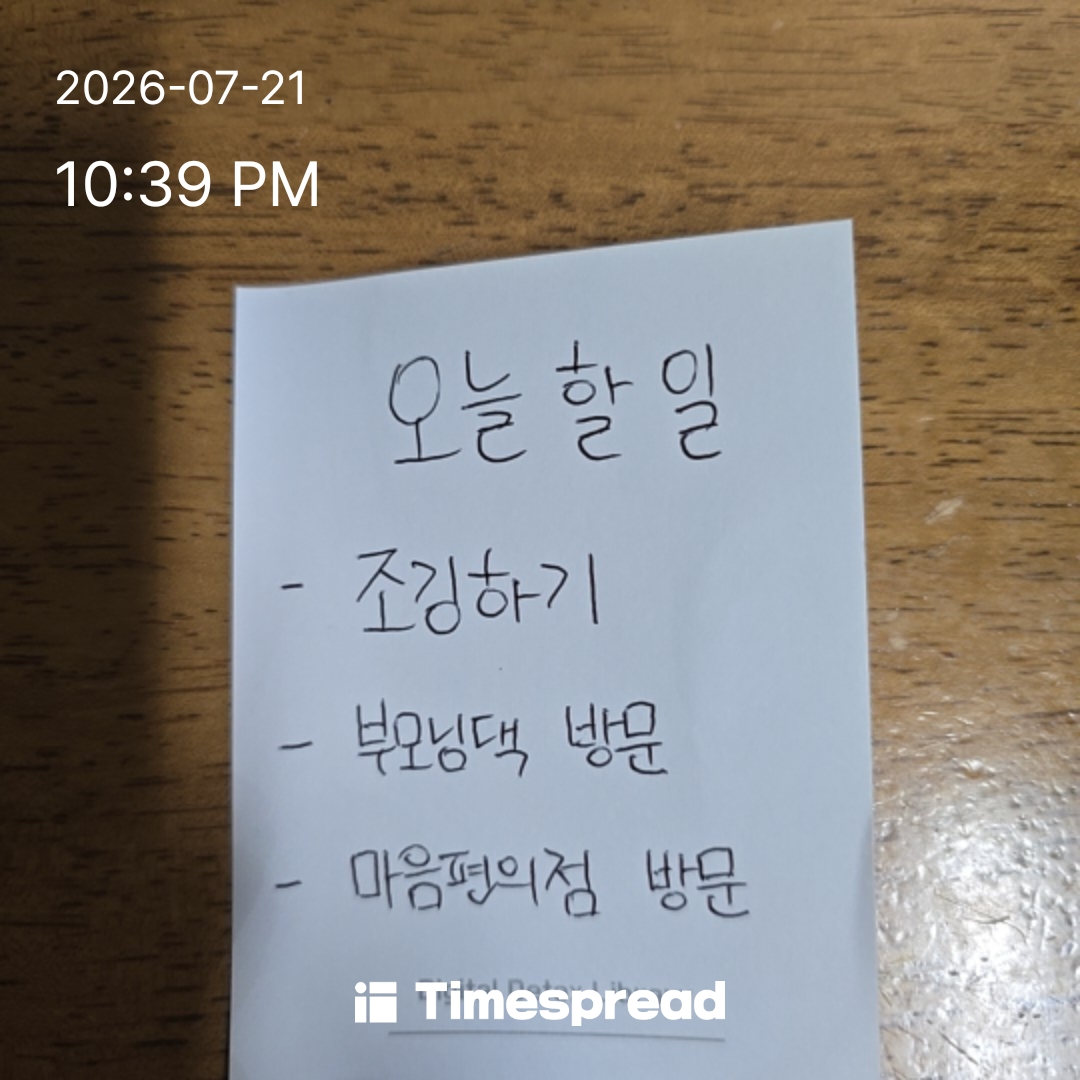 2026-07-21
10:39 PM
오늘 할 일
- 조깅하기
- 부모님댁 방문
- 마음편의점 방문
Timespread